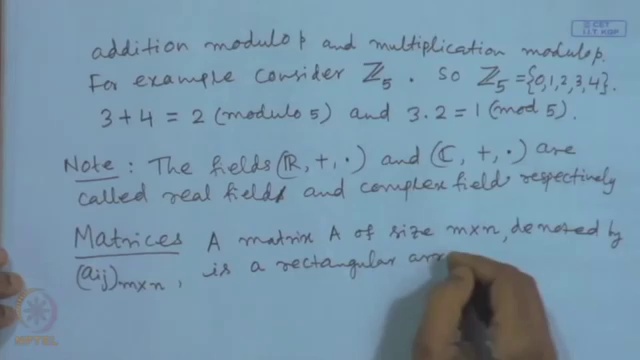 © CET
I.I.T. KGP
addition modulo p and multiplication modulo p.
For example consider ℤ₅. So ℤ₅ = {0,1,2,3,4}.
3 + 4 = 2 (modulo 5) and 3.2 = 1 (mod 5).
Note : The fields (ℝ, +, ·) and (ℂ, +, ·) are
called real field and complex field respectively
Matrices A matrix A of size m×n, denoted by
(aij)m×n, is a rectangular arr
NPTEL